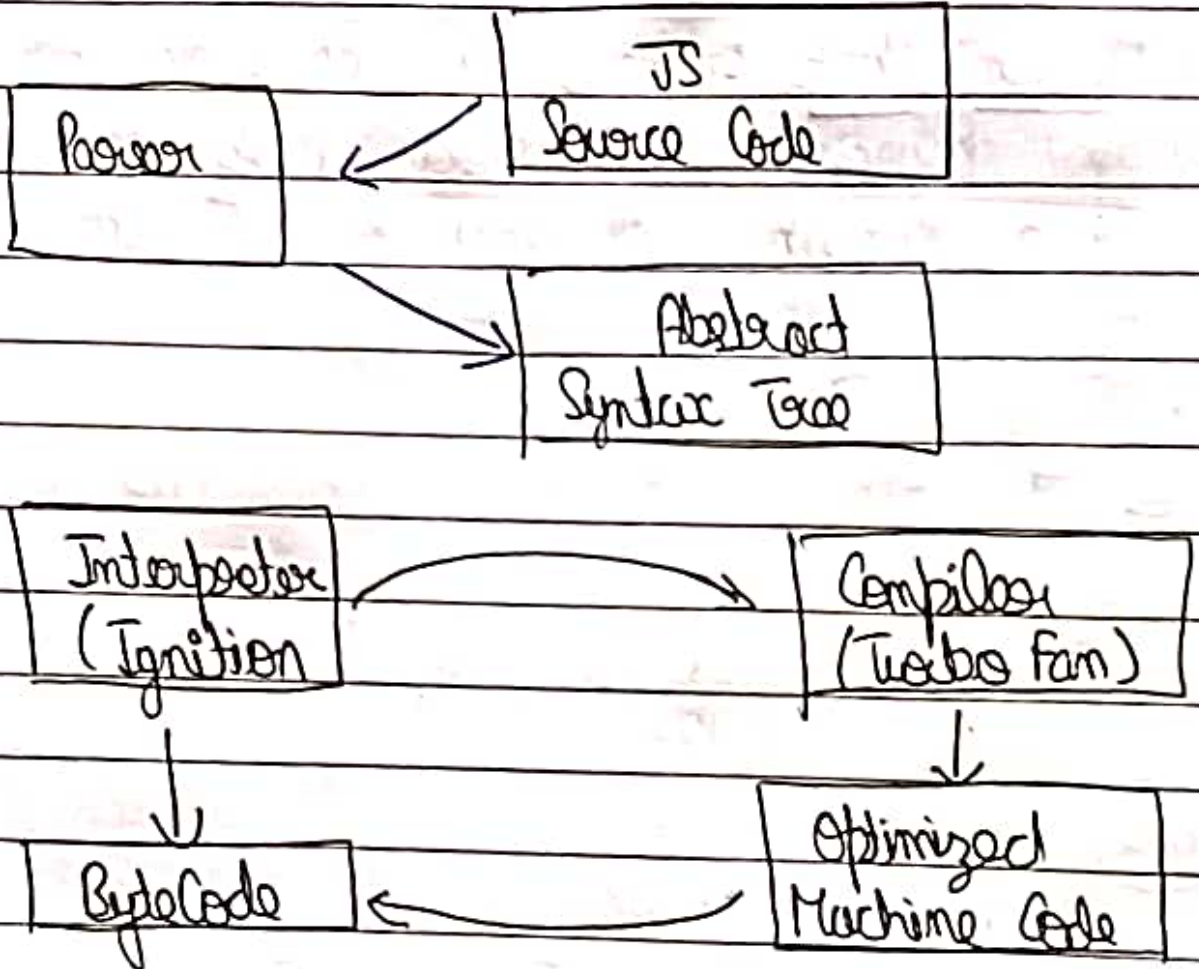 JS
Source Code
Parser
Abstract
Syntax Tree
Interpreter
(Ignition
Compiler
(Turbo Fan)
ByteCode
Optimized
Machine Code